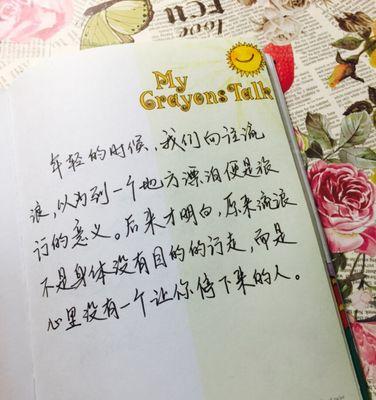 FUN
My
Crayons Talk
年轻的时候、我们向往流
浪，以为到一个地方漂泊便是旅
行的意义。后来才明白，原来流浪
不是身体没有目的的行走，而是
心里没有一个让你停下来的人。